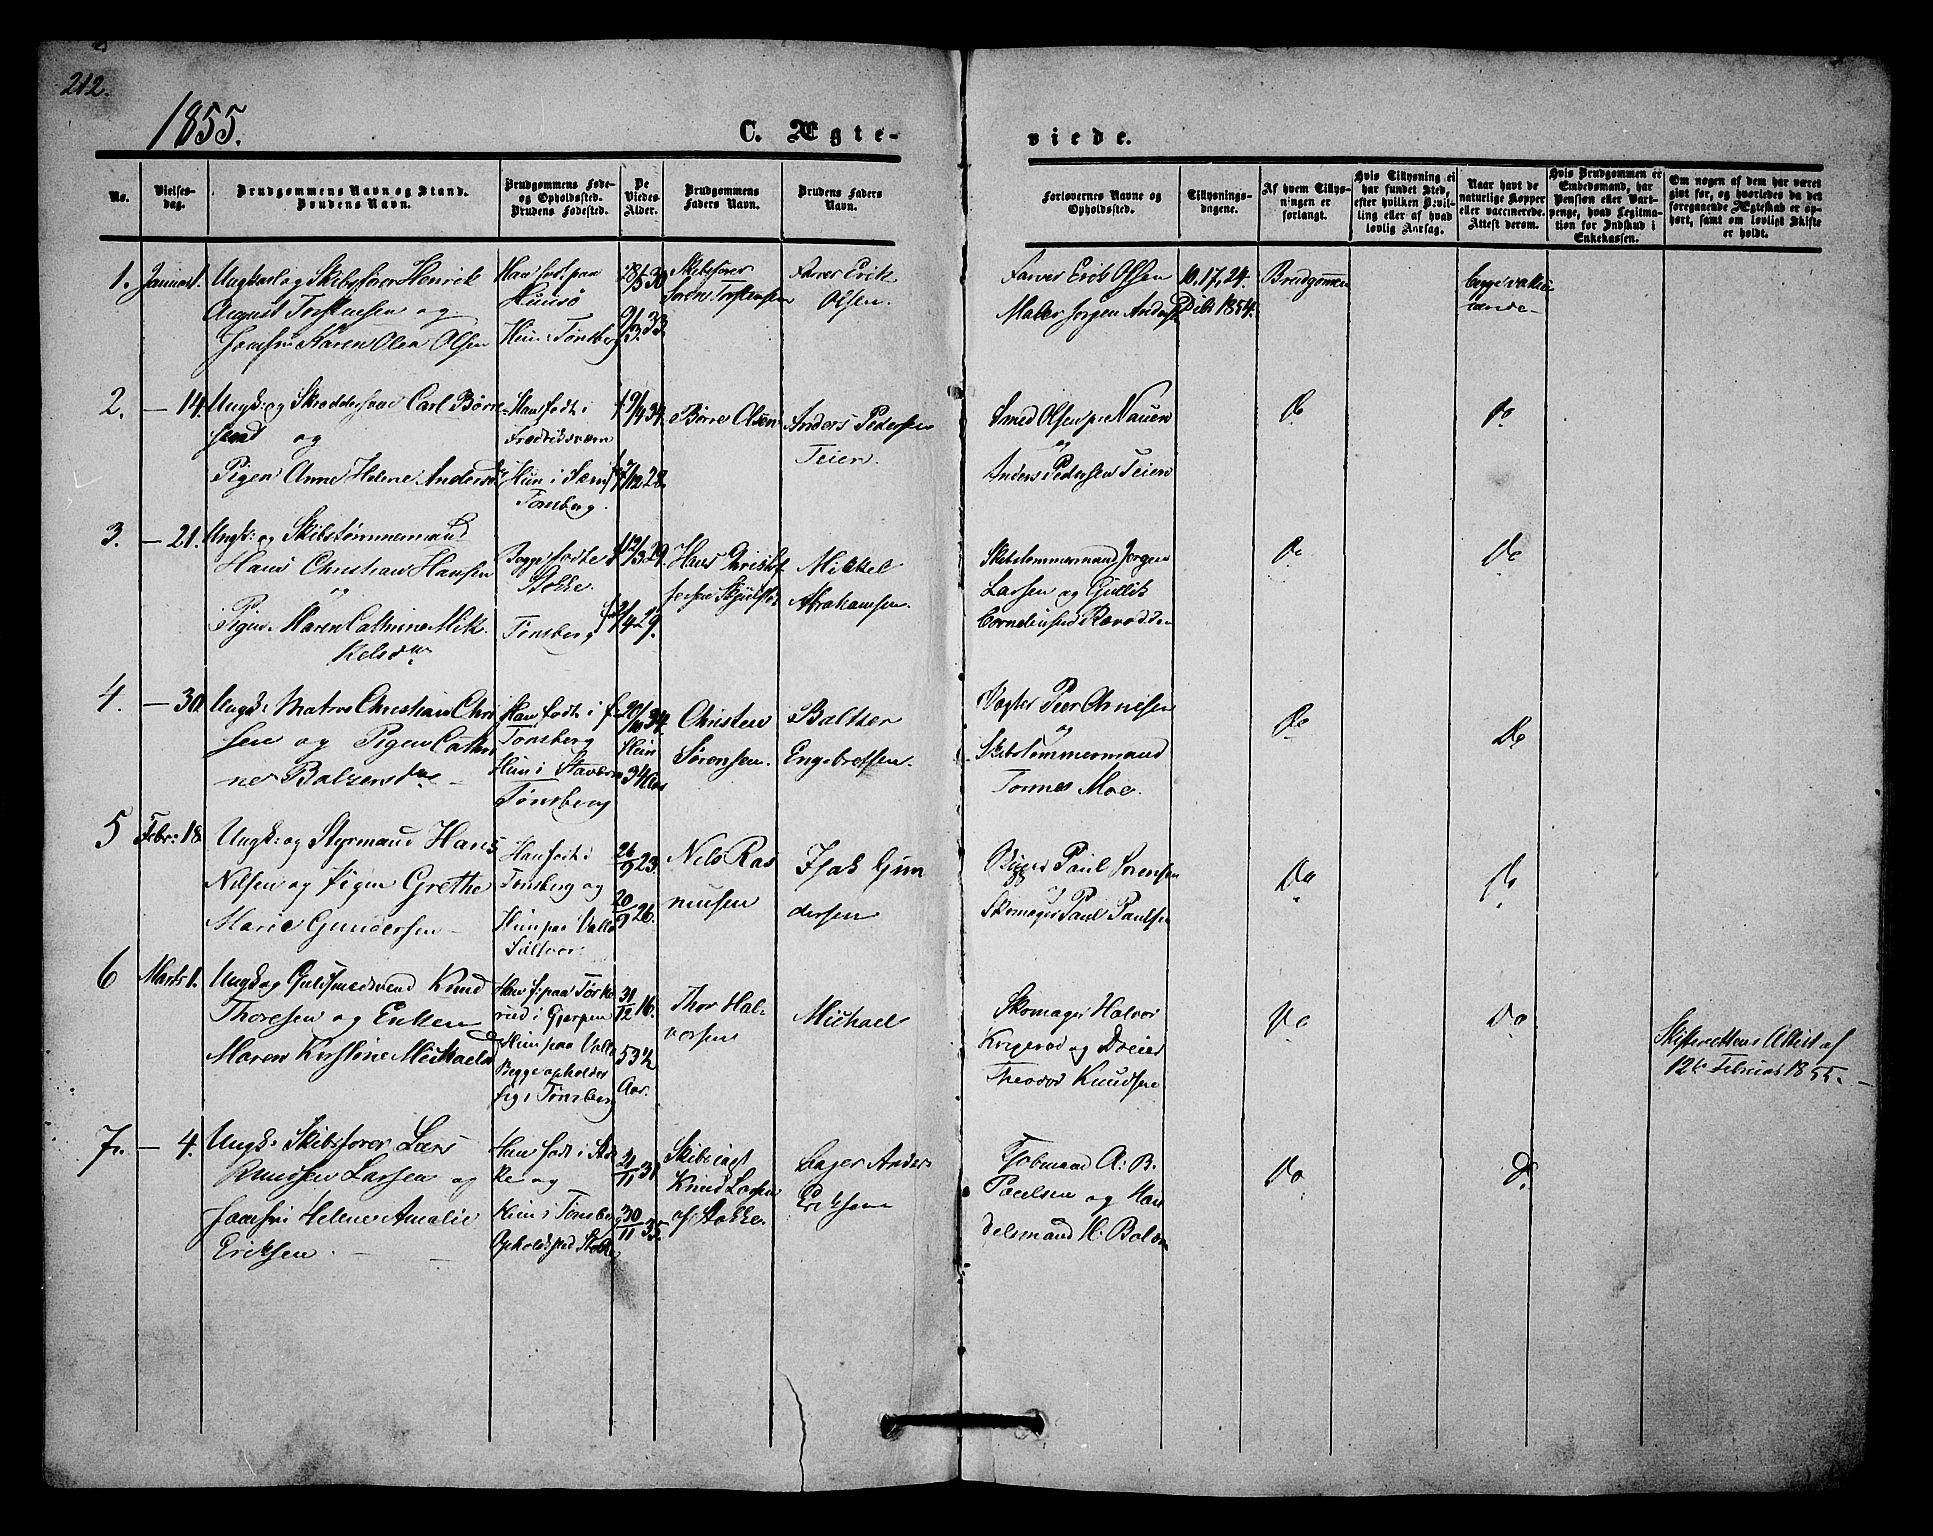 212.
1855.
C. Ægte-
viede.
No.
Vielses-
dag.
Brudgommens Navn og Stand.
Brudens Navn.
Brudgommens Føde-
og Opholdssted.
Brudens Fødested.
De
Viedes
Alder.
Brudgommens
Faders Navn.
Brudens Faders
Navn.
Forlovernes Navne og
Opholdssted.
Tillysnings-
dagene.
Af hvem Tillys-
ningen er
forlangt.
Hvis Tillysning ei
har fundet Sted,
efter hvilken Bevil-
ling eller af hvad
lovlig Aarsag.
Naar havt de
naturlige Kopper
eller vaccinerede.
Attest derom.
Hvis Brudgommen er
Embedsmand, har
Pension eller Vart-
penge, hvad Legitima-
tion for Indskud i
Enkekassen.
Om nogen af dem har været
gift før, og hvorledes da det
foregaaende Ægteskab er op-
hørt, samt om lovligt Skifte
er holdt.
1.
Ungkarl og Skibsfører Henrik
August Torstensen og
Jomfru Karen Olea Olsen
Han født paa
Huusø
Hun i Tønsberg
28/5 30
9/3 33
Skibsfører
Søren Torstensen
Farver Erik
Olsen.
Farver Erik Olsen
Maler Jørgen Anders
10. 17, 24.
Debr 1854.
Brudgommen
begge vakci-
nerede
2.
— 14.
Ungk: og Skrædersvend Carl Børre-
send og
Pigen Anne Helene Anders
Han født i
Fredriksværn
Hun i Sæm
Tønsberg.
19/9 34
7/12 28.
Børre Olsen
Anders Pedersen
Teien.
Smed Olsen p: Nauen
og
Anders Pedersen Teien
Do
Do
3.
— 21.
Ungk: og Skibstømmermand
Hans Christian Hansen
og
Pigen Maren Cathrine Mik-
kelsdtr
Begge fødte i
Stokke.
Tønsberg
12/3 29.
4 29.
Hans Christof-
fersen
Mikkel
Abrahamsen.
Skibstømmermand Jørgen
Larsen og Gullik
Corneliussen Ravodden
Do
Do
4.
— 30.
Ungk: Matros Christian Chri
sen og Pigen Cathri
ne Balzersdtr —
Han født i
Tønsberg
Hun i Staværn
Tønsberg
29/10 34.
Hun
34 Aar
Christen
Sørensen.
Baltzer
Engebretsen.
Vægter Peer Arnesen
og
Skibstømmermand
Tønnes Moe.
Do
Do
5
Febr: 18
Ungk: og Styrmand Hans
Nilsen og Pigen Grethe
Marie Gundersen —
Han født i
Tønsberg og
Hun paa Vallø
Saltver.
26/9 23.
20/9 26.
Nils Ras
musen
Isak Gun
dersen
Rigger Paul Sørensen
og
Skomager Paul Paulsen
Do
Do
6
Marts 1.
Ungk og Guldsmedsvend Knud
Thoresen og Enken
Maren Kirstine Michaelsd
Han f: paa Tørke
rud i Gjerpen
Hun paa Vallø
Begge opholder
sig i Tønsberg
31/12 16.
53 1/2
Aar.
Thor Hal-
vorsen
Michael
Skomager Halvor
og Dreier
Theodor Knudsen
Do
Do
Skifterettens Attest af
12te Februar 1855. —
7.
— 4.
Ungk: Skibsfører Lars
Knudsen Larsen og
Jomfru Helene Amalie
Eriksen. —
Han født i Stok
ke og
Hun i Tønsberg
Opholdssted Stokke
21/11 31
30/11 35.
Knud Larsen
af Stokke.
Bager Anders
Eriksen
Tobmand A: B.
Poulsen og Han
delsmand H: Bolv
Do
Do